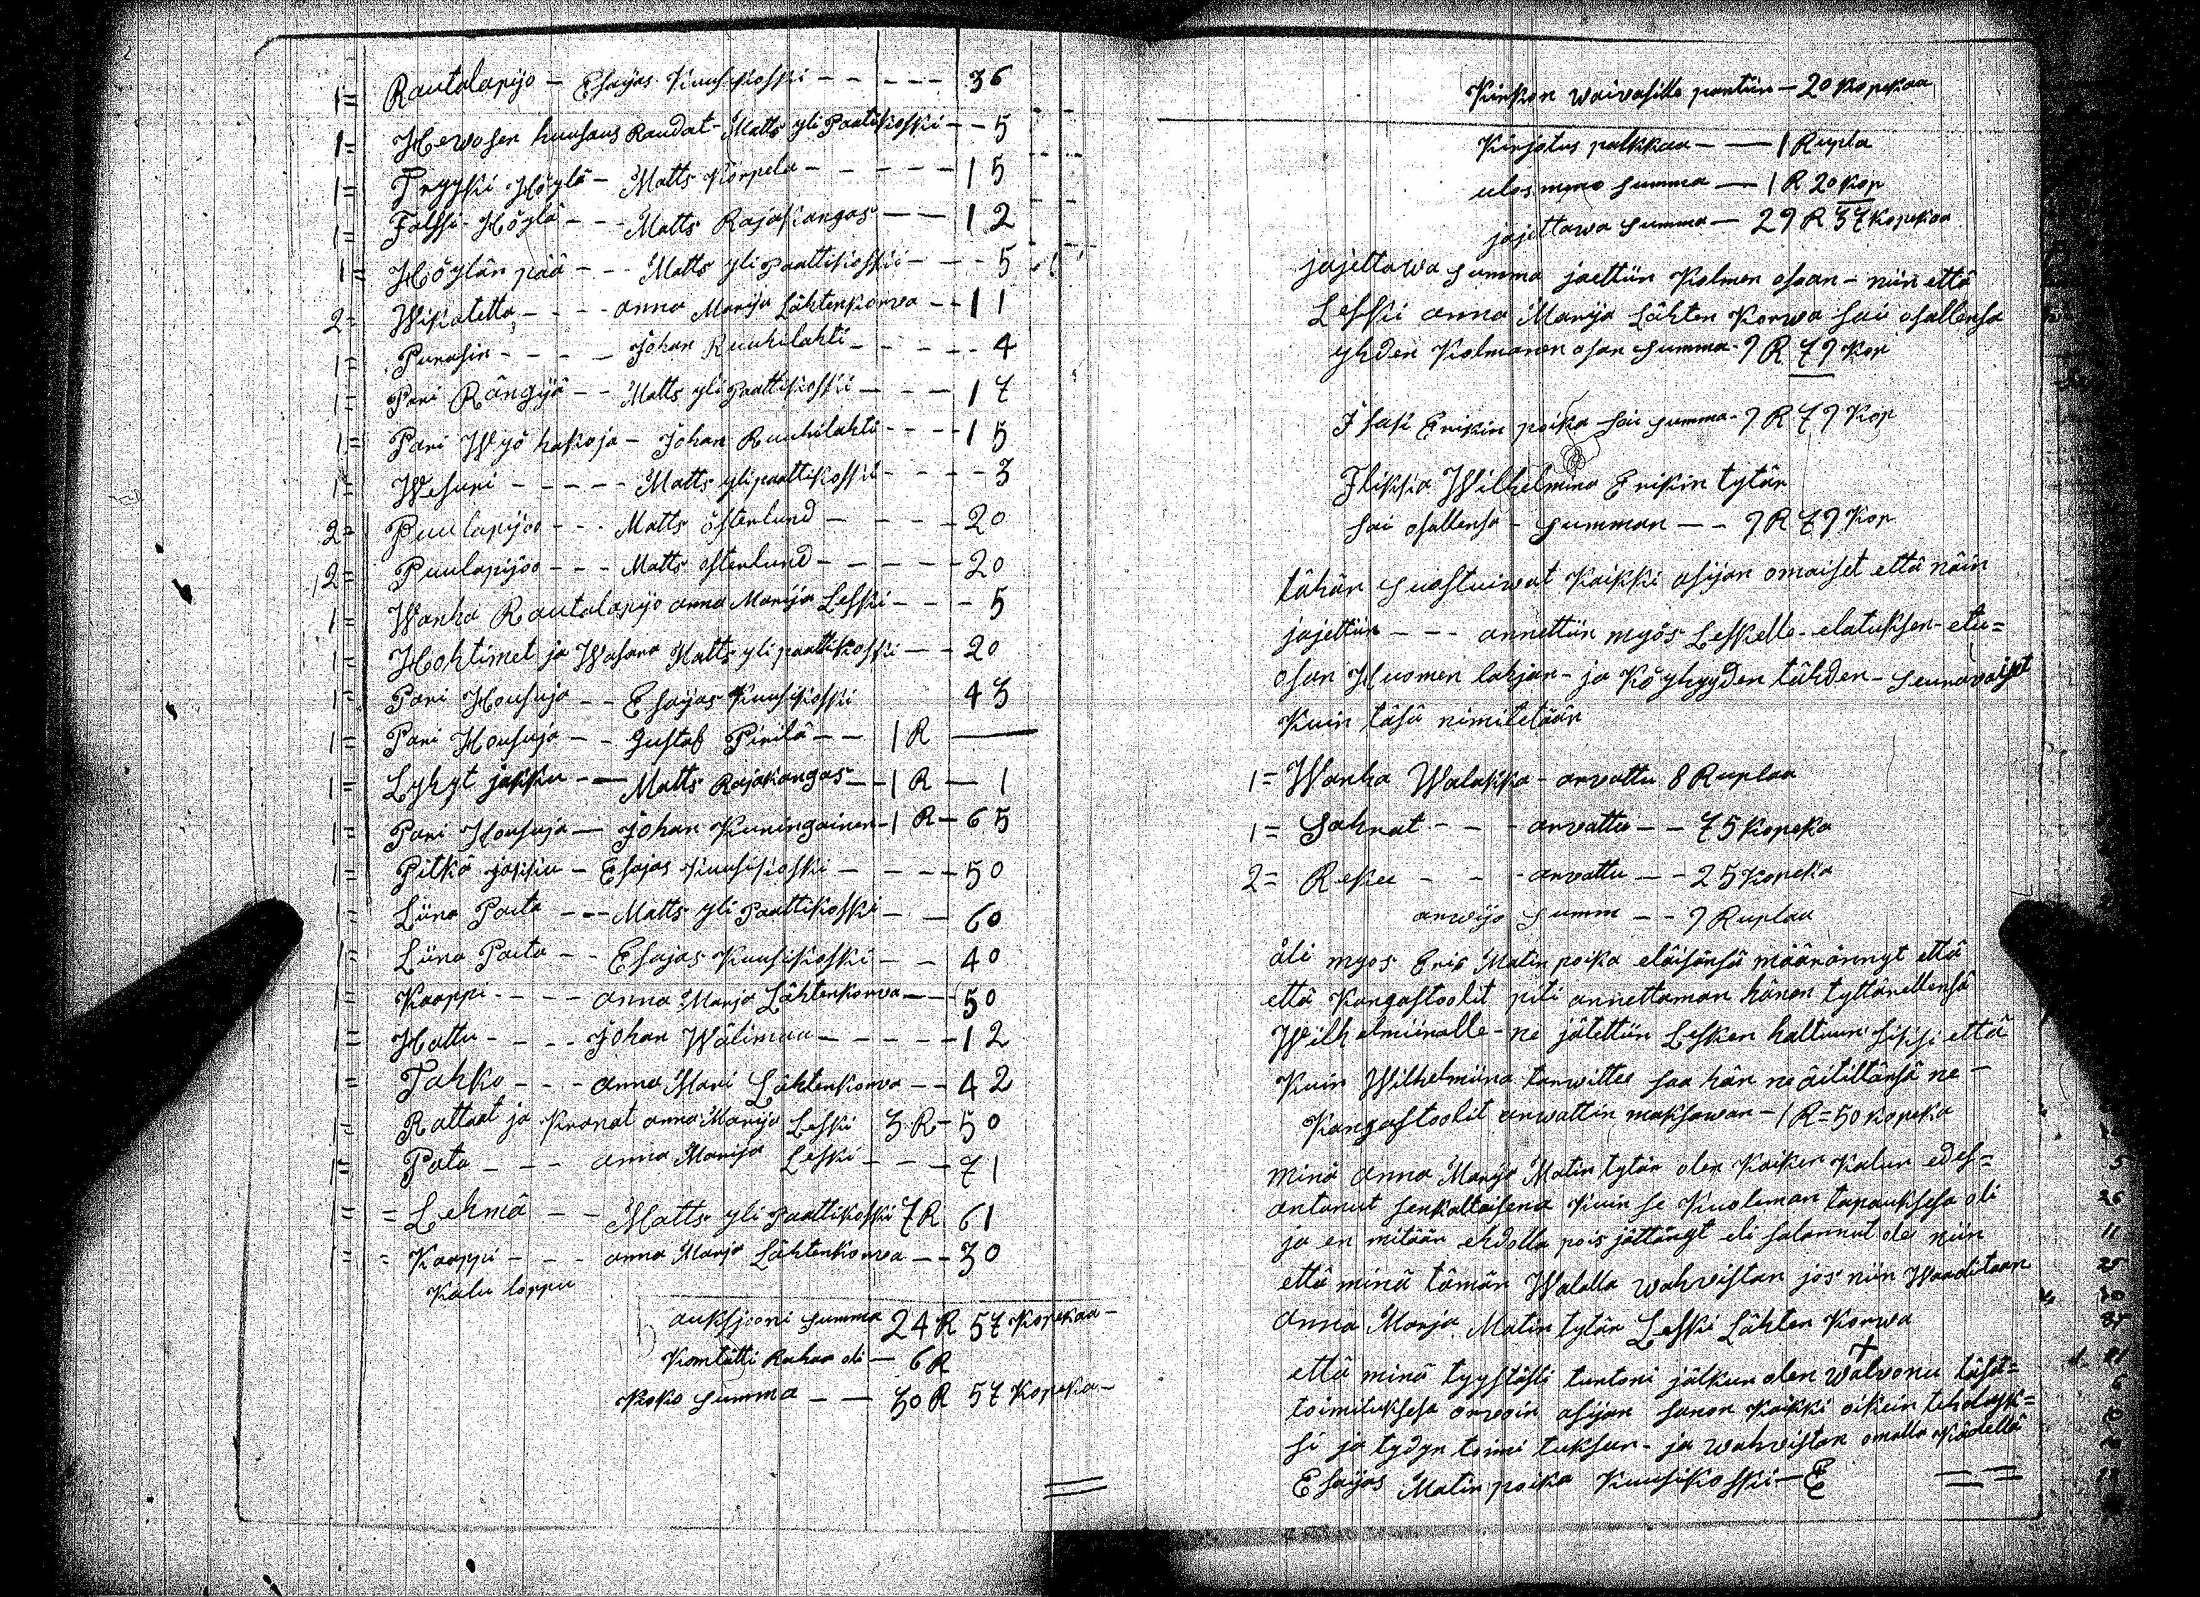 1= Rautalapijo - Esaijas Kuusikoski - - - - - 36
1= Hewosen huusaus Raudat - Matts yli Paatikoski - - 5
1= Tryyki Höylä - Matts Korpela - - - - - 15
1= Falssi Höylä - - - Matts Rajakangas - - - 12
1= Höylän pää - - - Matts yli paattikoski - - - 5
2= Wikatetta - - - anna Marija Lähtenkorwa - - 11
1= Purasin - - - - Johan Ruuhilahti - - - - - 4
1= Pari Rängijä - - Matts yli paattikoski - - - 17
1= Pari Wyö hakoja - Johan Ruuhilahti - - - 15
1= Wesuri - - - - - Matts ylipaattikoski - - - - 3
2= Puulapijoo - - - Matts österlund - - - - 20
2= Puulapijoo - - - Matts österlund - - - - - 20
1= Wanha Rautalapijo anna Marija Leski - - - 5
1= Hohtimet ja Wasara Matts yli paattikoski - - 20
1= Pari Housuja - - Esaijas Kuusikoski 43
1= Pari Housuja - - Gustaf Pirilä - - 1 R —
1= Lyhyt jakku - - Matts Rajakangas - - 1 R - 1
1= Pari Housuja - Johan Kuningainen - 1 R - 65
1= Pitkä jakku - Esajas Kuusikoski - - - - 50
1= Liina Paita - - - Matts yli Paattikoski - - 60
1= Liina Paita - - Esajas Kuusikoski - - 40
1= Kaappi - - - - anna Marja Lähtenkorwa - - - 50
1= Hattu - - - - Johan Wälimaa - - - - - 12
1= Tahko - - - anna Mari Lähtenkorwa - - 42
1= Rattaat ja Kranat anna Marija Leski 3 R - 50
1= Pata - - - anna Marija Leski - - - 71
1= = Lehmä - - Matts yli paattikoski 7 R 61
1= = Kaappi - - - anna Marja Lähtenkorwa - - 30
Kalu loppu
auksjooni summa 24 R 57 Kopekaa -
Komtätti Rahaa oli - 6 R
Koko summa - - 30 R 57 Kopeka -
Kirkon waivasille pantiin - 20 Kopekaa
Kirjotus palkkaa - - 1 Rupla
ulos meno summa - 1 R 20 Kop
jajettawa summa - 29 R 37 Kopekaa
jajettawa summa jaettiin Kolmen osaan - niin että
Leski anna Marija Lähten Korwa sai osallensa
yhden Kolmanen osan summa - 9 R 79 Kop
Isak Erikin poika sai summa - 9 R 79 Kop
Flikka Wilhelmina Erikin tytär
sai osallensa - summan - - 9 R 79 Kop
tähän suostuiwat Kaikki asijan omaiset että näin
jajettiin - - - annettiin myös Leskelle - elatuksen - etu=
osan Huomen lahjan - ja Köyhyyden tähden - seuraavaiset
Kuin täsä nimitetään
1= Wanha Walakka - arwattu 8 Ruplaa
1= Sahrat - - - arwattu - - 75 Kopeka
2= Rekee - - - arwattu - - 25 Kopeka
arwijo summ - - 9 Ruplaa
oli myös Eric Matin poika eläisänsä määrännyt että
että Kangastoolit piti annettaman hänen tyttärellensä
Wilhelmiinalle - ne jätettiin Lesken haltuun siksi että
Kuin Wilhelmiina tarwittee saa hän ne äitiltänsä ne -
Kangastoolit arwattiin maksawan - 1 R = 50 Kopeka
minä anna Marja Matin tytär olen Kaiken Kalun edes=
antanut senkaltaisena Kuin se Kuoleman tapauksesa oli
ja en mitään ehdolla pois jättänyt eli salannut ole niin
että minä tämän Walalla wahwistan jos niin Waaditaan
anna Marja Matin tytär Leski Lähten Korwa
+
että minä tyystästi tuntoni jälkun olen walvonu täsä=
toimituksesa arwoin asijan sanon Kaikki oikein tehdyk=
si ja tydyn toimi tuksun - ja wahwistan omalla Kädellä
Esaijas Matin poika Kuusikoski - E